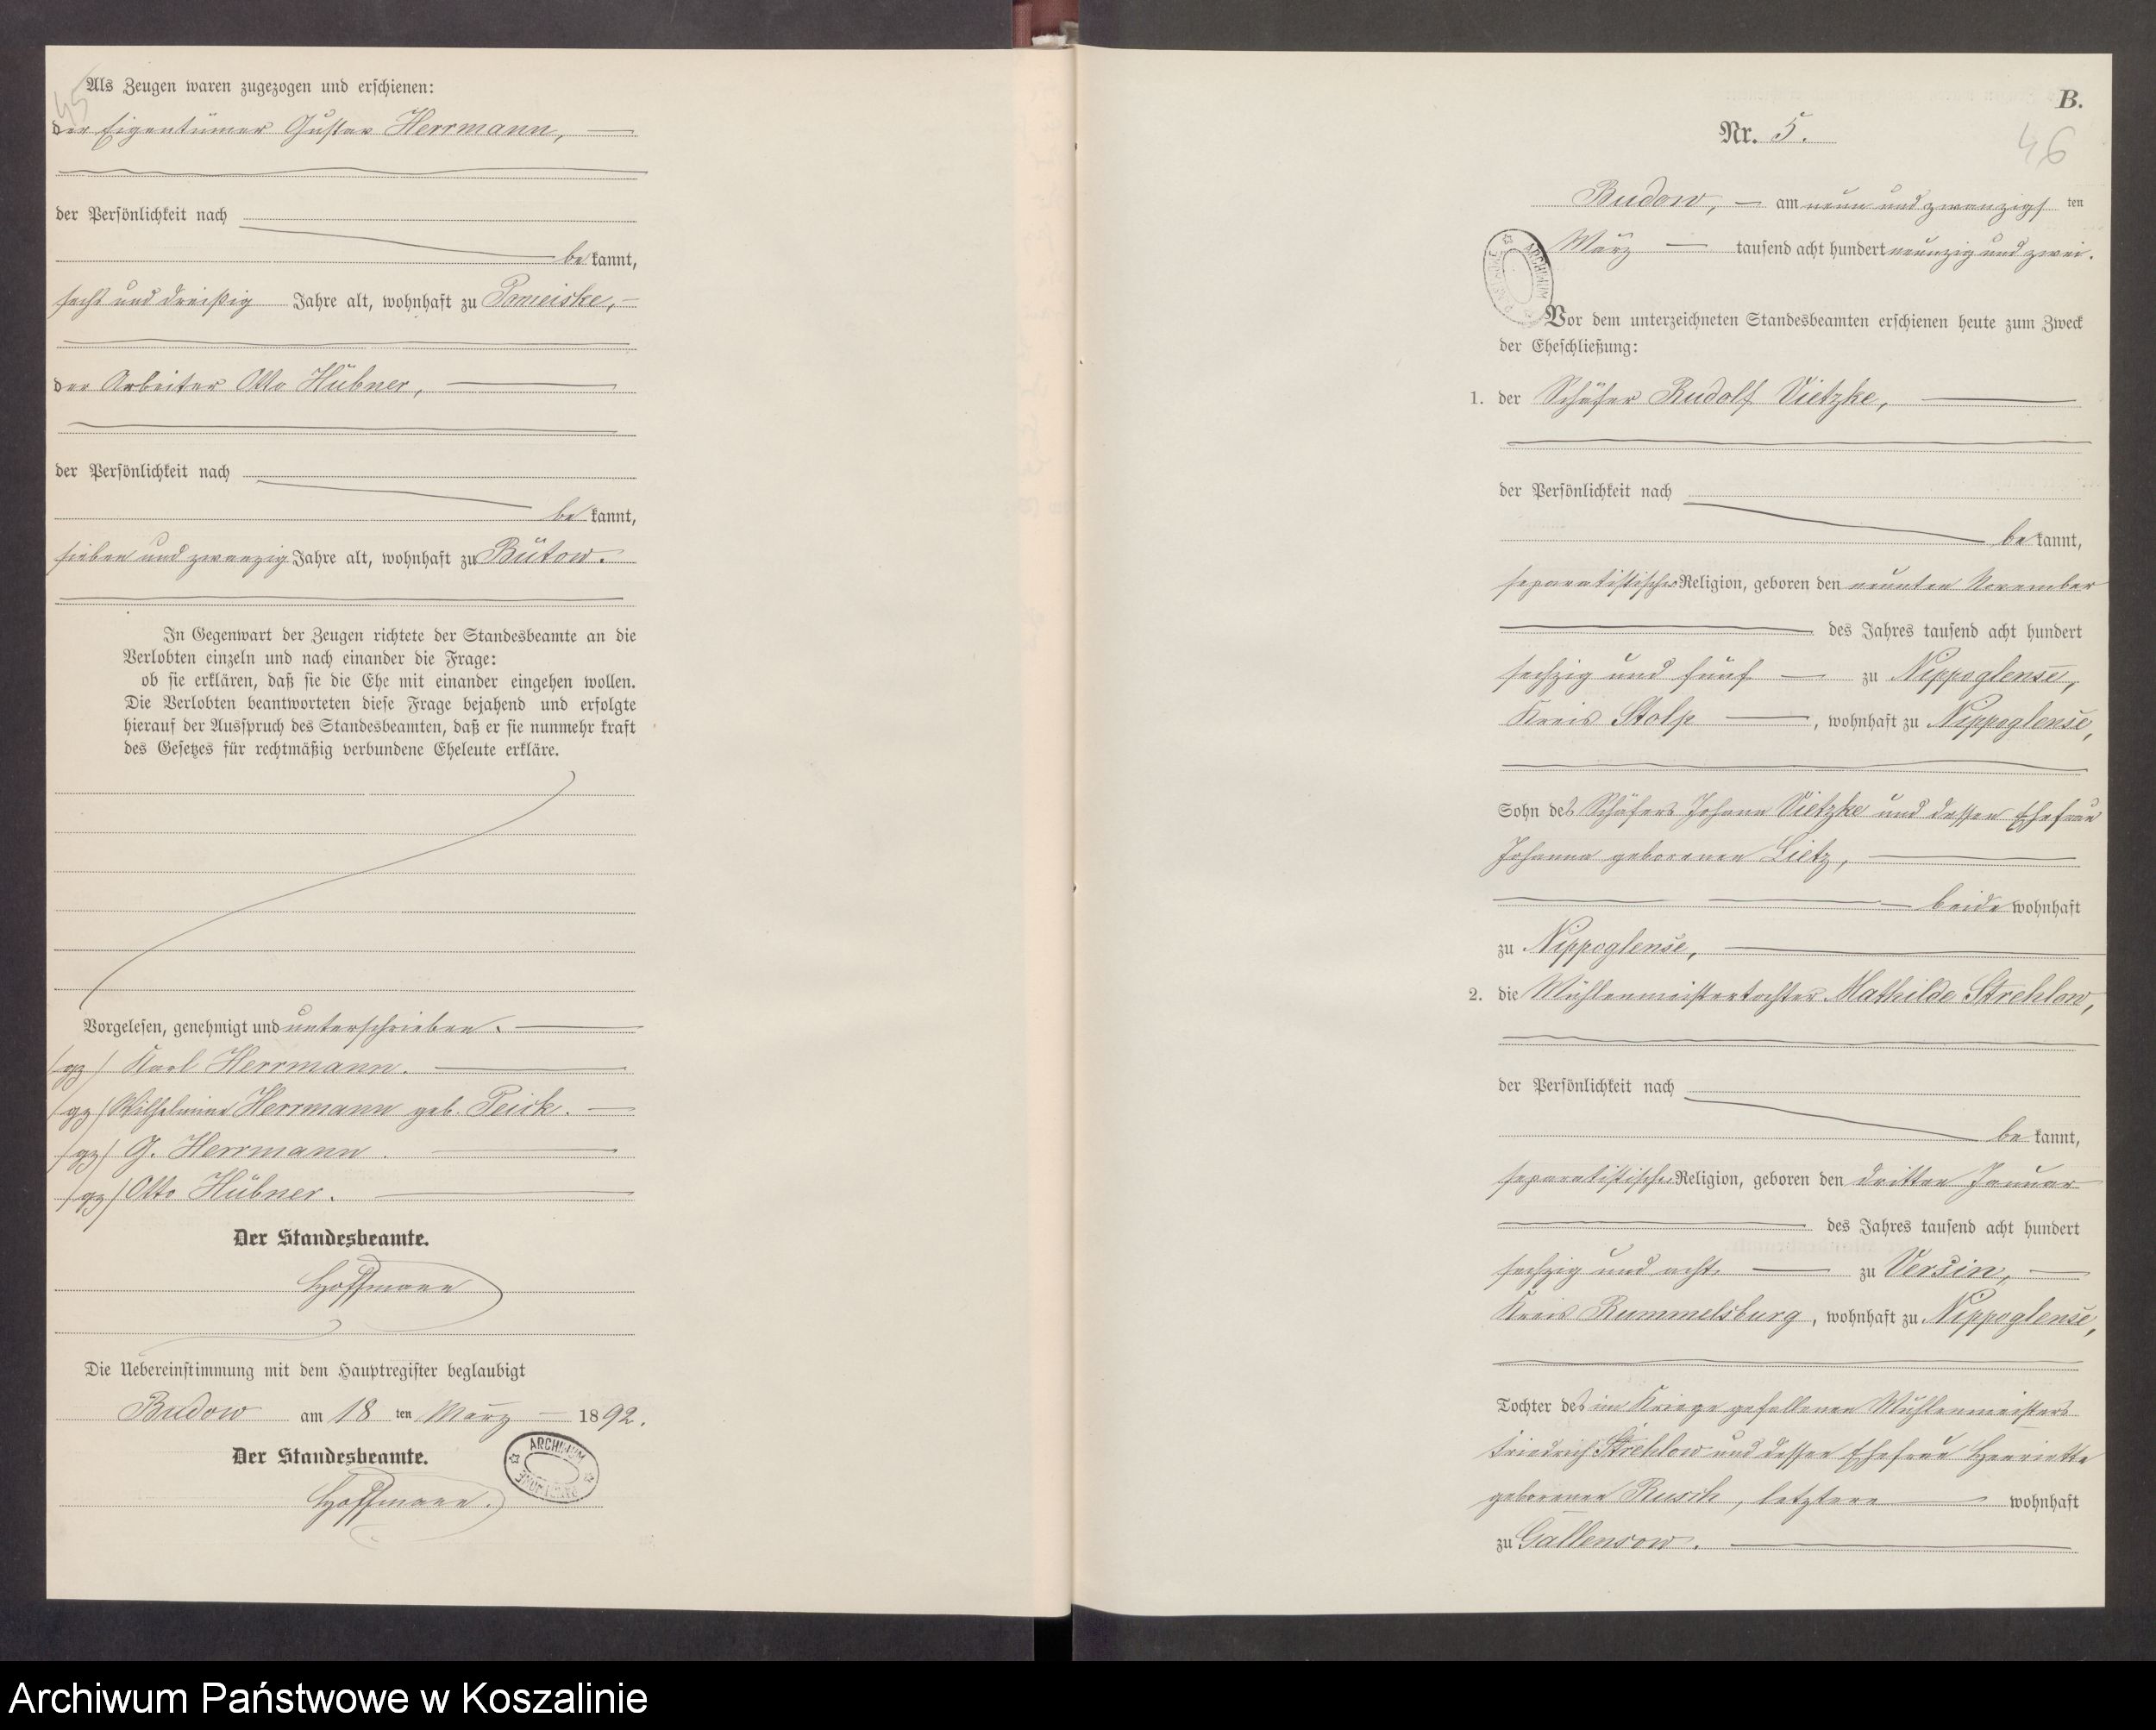 45
Als Zeugen waren zugezogen und erschienen:
der Eigentümer Gustav Herrmann,
der Persönlichkeit nach
be kannt,
sechs und dreißig Jahre alt, wohnhaft zu Pomeiske,
der Arbeiter Otto Hübner,
der Persönlichkeit nach
be kannt,
sieben und zwanzig Jahre alt, wohnhaft zu Bütow.
In Gegenwart der Zeugen richtete der Standesbeamte an die
Verlobten einzeln und nach einander die Frage:
ob sie erklären, daß sie die Ehe mit einander eingehen wollen.
Die Verlobten beantworteten diese Frage bejahend und erfolgte
hierauf der Ausspruch des Standesbeamten, daß er sie nunmehr kraft
des Gesetzes für rechtmäßig verbundene Eheleute erkläre.
Vorgelesen, genehmigt und unterschrieben.
/gz/ Karl Herrmann.
/gz/ Wilhelmine Herrmann geb. Peick.
/gz/ G. Herrmann.
/gz/ Otto Hübner.
Der Standesbeamte.
Hoffmann
Die Uebereinstimmung mit dem Hauptregister beglaubigt
Budow am 18 ten März 1892.
Der Standesbeamte.
Hoffmann.
ARCHIWUM
B.
46
Nr. 5.
Budow, am neun und zwanzigs ten
März tausend acht hundert neunzig und zwei.
ARCHIWUM
Vor dem unterzeichneten Standesbeamten erschienen heute zum Zweck
der Eheschließung:
1. der Schäfer Rudolf Vietzke,
der Persönlichkeit nach
be kannt,
separatistischer Religion, geboren den neunten November
des Jahres tausend acht hundert
sechzig und fünf zu Nippoglense,
Kreis Stolp, wohnhaft zu Nippoglense,
Sohn des Schäfers Johann Vietzke und dessen Ehefrau
Johanna geborenen Lietz,
beide wohnhaft
zu Nippoglense,
2. die Mühlenmeistertochter Mathilde Strehlow,
der Persönlichkeit nach
be kannt,
separatistischer Religion, geboren den dritten Januar
des Jahres tausend acht hundert
sechzig und acht zu Versin,
Kreis Rummelsburg, wohnhaft zu Nippoglense,
Tochter des im Kriege gefallenen Mühlenmeisters
Friedrich Strehlow und dessen Ehefrau Henriette
geborenen Rusch, letztere wohnhaft
zu Gallensow.
Archiwum Państwowe w Koszalinie